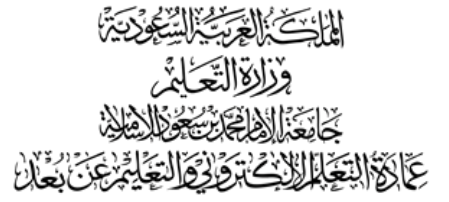 المملكة العربية السعودية
وزارة التعليم
جامعة الإمام محمد بن سعود الإسلامية
عمادة التعلم الإلكتروني والتعليم عن بعد